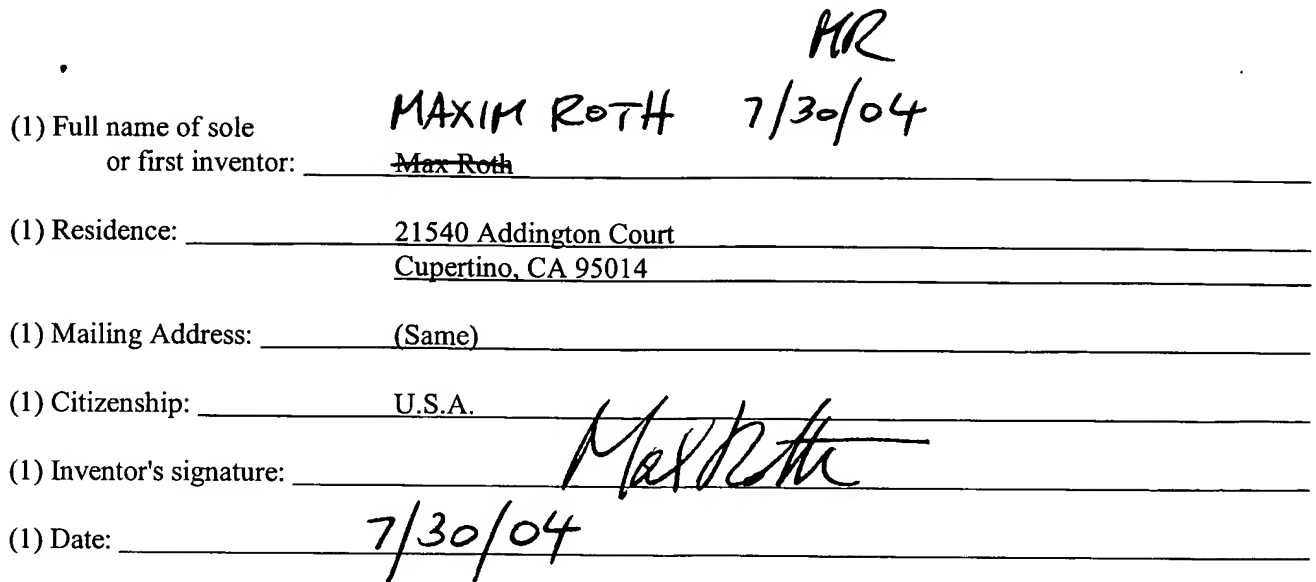 MR
MAXIM ROTH 7/30/04
(1) Full name of sole
or first inventor: Max Roth
(1) Residence: 21540 Addington Court
Cupertino, CA 95014
(1) Mailing Address: (Same)
(1) Citizenship: U.S.A.
(1) Inventor's signature: Max Roth
(1) Date: 7/30/04